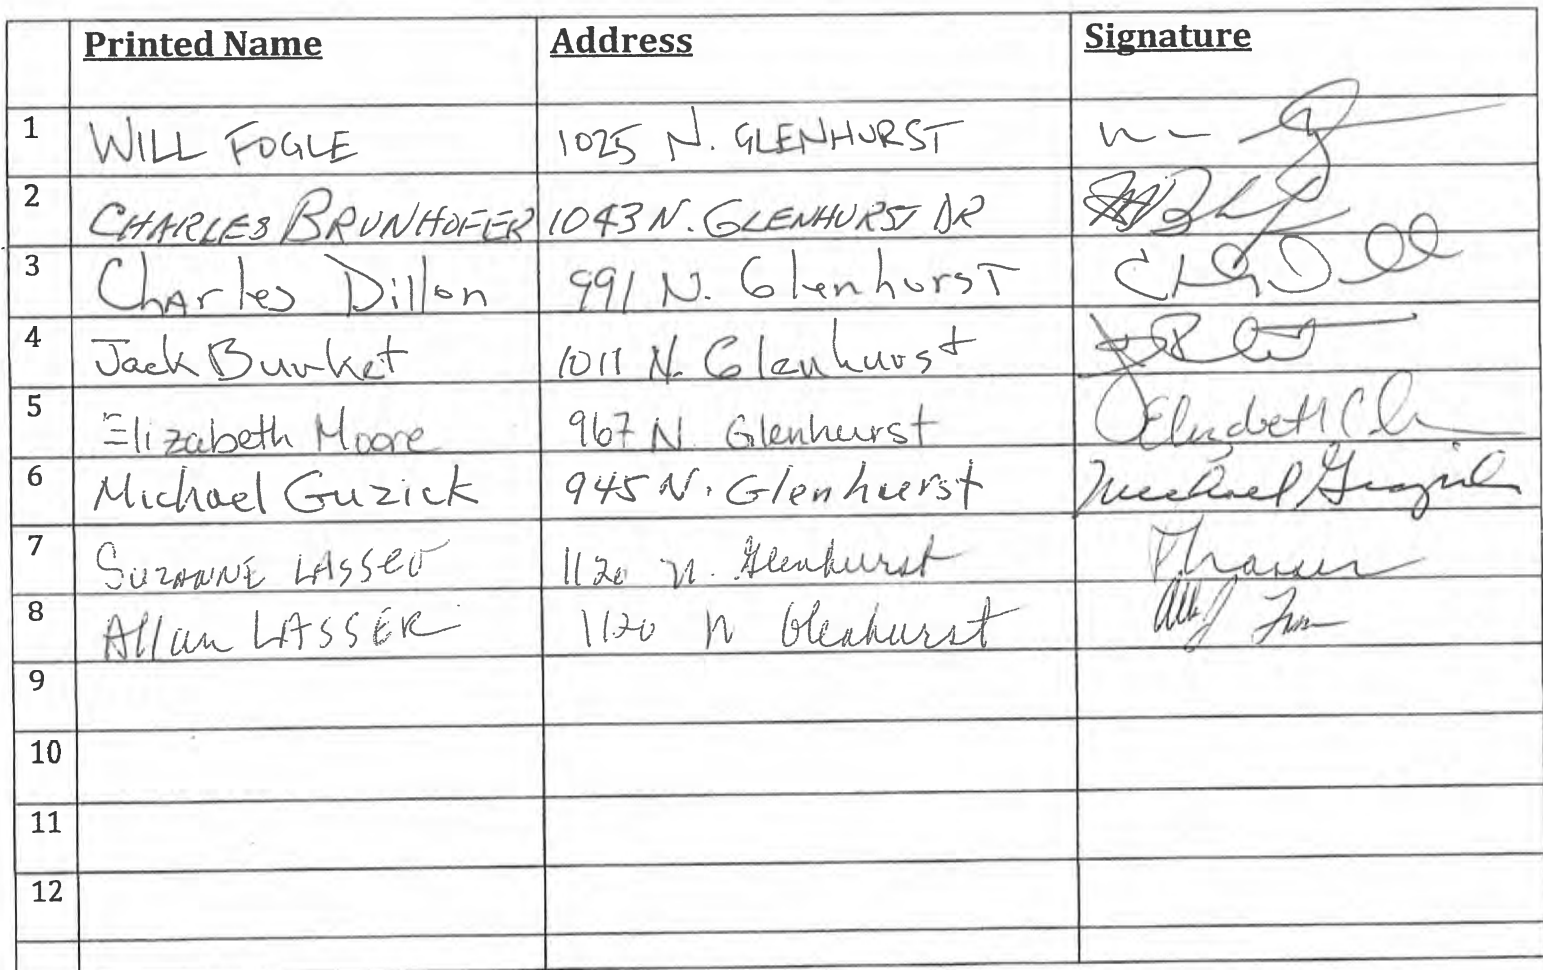 Printed Name Address Signature
1 WILL FOGLE 1025 N. GLENHURST
2 CHARLES BRUNHOFER 1043 N. GLENHURST DR
3 Charles Dillon 991 N. Glenhurst
4 Jack Burket 1011 N. Glenhurst
5 Elizabeth Moore 967 N. Glenhurst
6 Michael Guzick 945 N. Glenhurst Michael Guzick
7 SUZANNE LASSER 1120 N. Glenhurst
8 Allan LASSER 1120 N Glenhurst
9
10
11
12